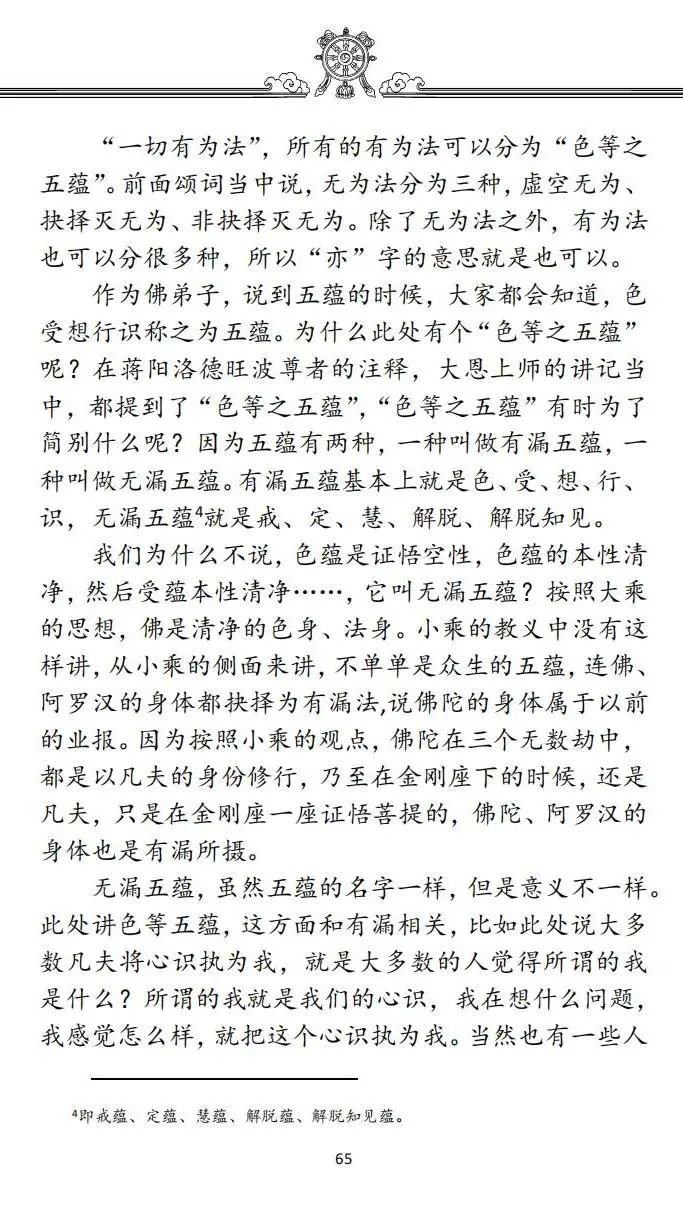 “一切有为法”，所有的有为法可以分为“色等之
五蕴”。前面颂词当中说，无为法分为三种，虚空无为、
抉择灭无为、非抉择灭无为。除了无为法之外，有为法
也可以分很多种，所以“亦”字的意思就是也可以。
作为佛弟子，说到五蕴的时候，大家都会知道，色
受想行识称之为五蕴。为什么此处有个“色等之五蕴”
呢？在蒋阳洛德旺波尊者的注释，大恩上师的讲记当
中，都提到了“色等之五蕴”，“色等之五蕴”有时为了
简别什么呢？因为五蕴有两种，一种叫做有漏五蕴，一
种叫做无漏五蕴。有漏五蕴基本上就是色、受、想、行、
识，无漏五蕴4就是戒、定、慧、解脱、解脱知见。
我们为什么不说，色蕴是证悟空性，色蕴的本性清
净，然后受蕴本性清净……，它叫无漏五蕴？按照大乘
的思想，佛是清净的色身、法身。小乘的教义中没有这
样讲，从小乘的侧面来讲，不单单是众生的五蕴，连佛、
阿罗汉的身体都抉择为有漏法,说佛陀的身体属于以前
的业报。因为按照小乘的观点，佛陀在三个无数劫中，
都是以凡夫的身份修行，乃至在金刚座下的时候，还是
凡夫，只是在金刚座一座证悟菩提的，佛陀、阿罗汉的
身体也是有漏所摄。
无漏五蕴，虽然五蕴的名字一样，但是意义不一样。
此处讲色等五蕴，这方面和有漏相关，比如此处说大多
数凡夫将心识执为我，就是大多数的人觉得所谓的我
是什么？所谓的我就是我们的心识，我在想什么问题，
我感觉怎么样，就把这个心识执为我。当然也有一些人
4即戒蕴、定蕴、慧蕴、解脱蕴、解脱知见蕴。
65